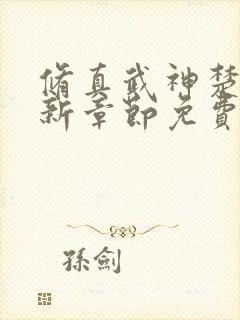 脩真武神楚
新章節免費
孫劍